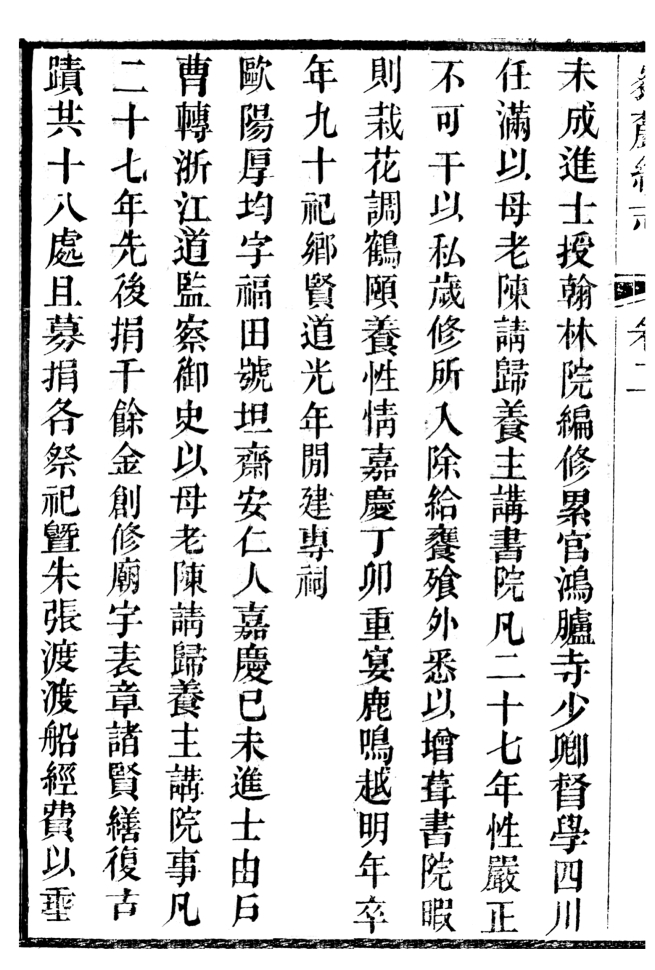 卷二
未成進士授翰林院編修累官鴻臚寺少卿督學四川
任滿以母老陳請歸養主講書院凡二十七年性嚴正
不可干以私歲修所入除給饔飱外悉以增葺書院暇
則栽花調鶴頤養性情嘉慶丁卯重宴鹿鳴越明年卒
年九十祀鄉賢道光年閒建專祠
歐陽厚均字福田號坦齋安仁人嘉慶已未進士由戶
曹轉浙江道監察御史以母老陳請歸養主講院事凡
二十七年先後捐千餘金創修廟宇表章諸賢繕復古
蹟共十八處且募捐各祭祀曁朱張渡渡船經費以垂